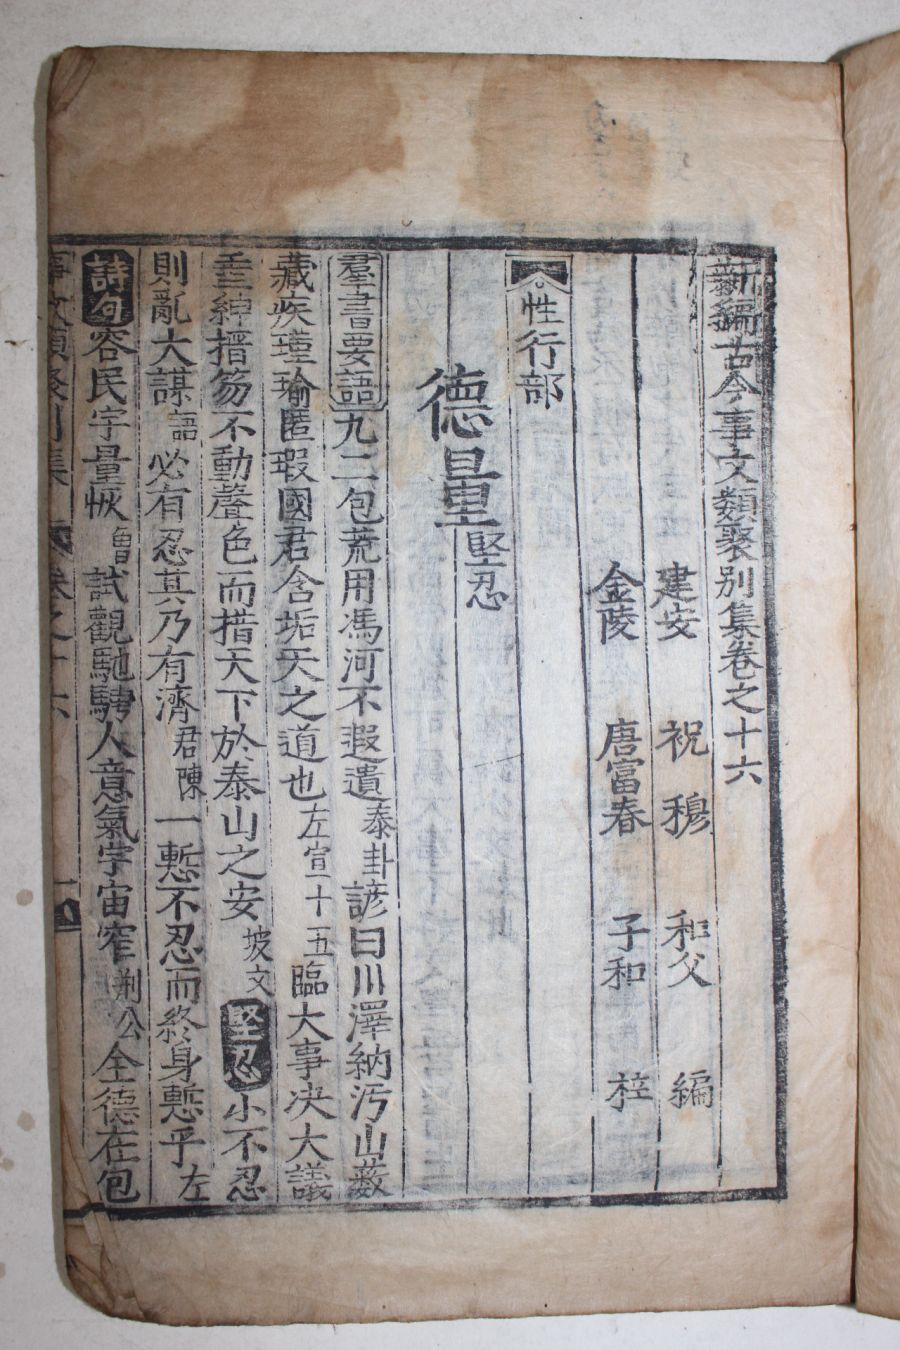 新編古今事文類聚別集卷之十六
建安 祝穆 和父 編
金陵 唐富春 子和 梓
性行部
德量 堅忍
羣書要語 九二包荒用馮河不遐遺 泰卦 諺曰川澤納污山藪
藏疾瑾瑜匿瑕國君含垢天之道也 左宣十五 臨大事决大議
垂紳搢笏不動聲色而措天下於泰山之安 坡文 堅忍 小不忍
則亂大謀 語 必有忍其乃有濟 君陳 一慙不忍而終身慙乎 左
詩句 容民宇量恢 曾 試觀馳騁人意氣芋宙窄 荆公 全德在包
事文類聚別集 卷之十六 一